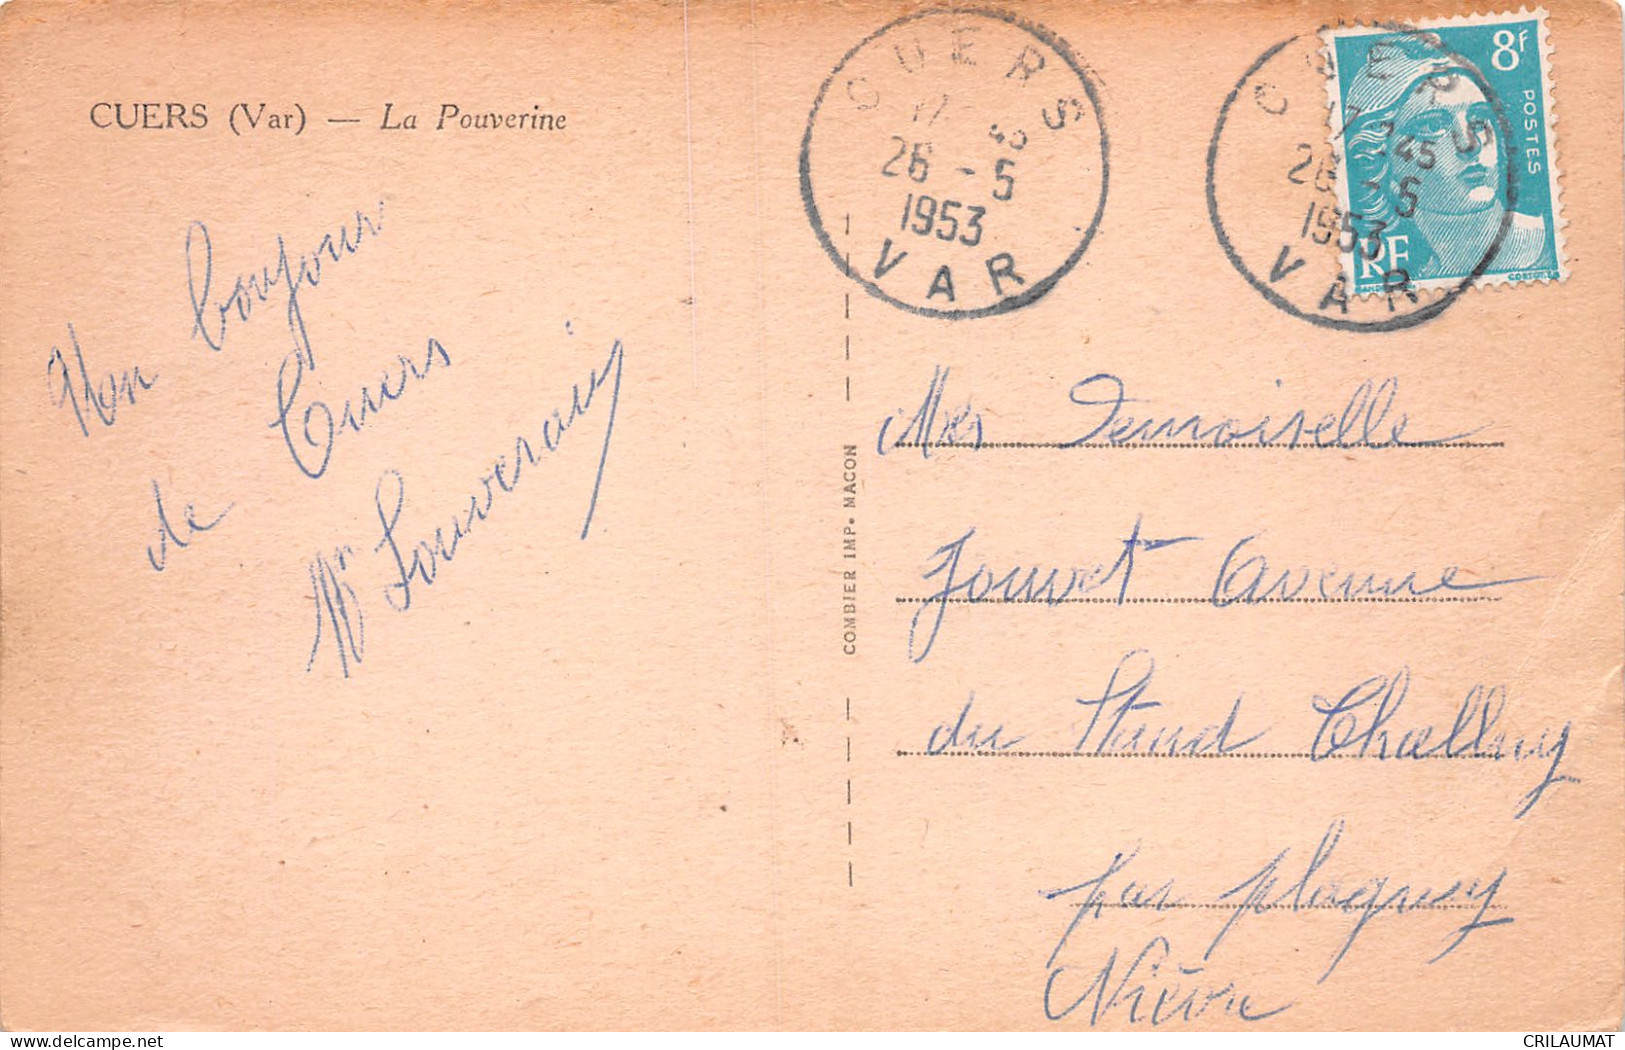 CUERS (Var) — La Pouverine
Un bonjour
de Cuers
Mr Souverain
COMBIER IMP. MACON
CUERS
17 45
26 - 5
1953
VAR
CUERS
17 45
26 - 5
1953
VAR
8F
POSTES
RF
Mes Demoiselle
Jouvet Avenue
du Stand Challuy
par plagny
Nièvre
CRILAUMAT